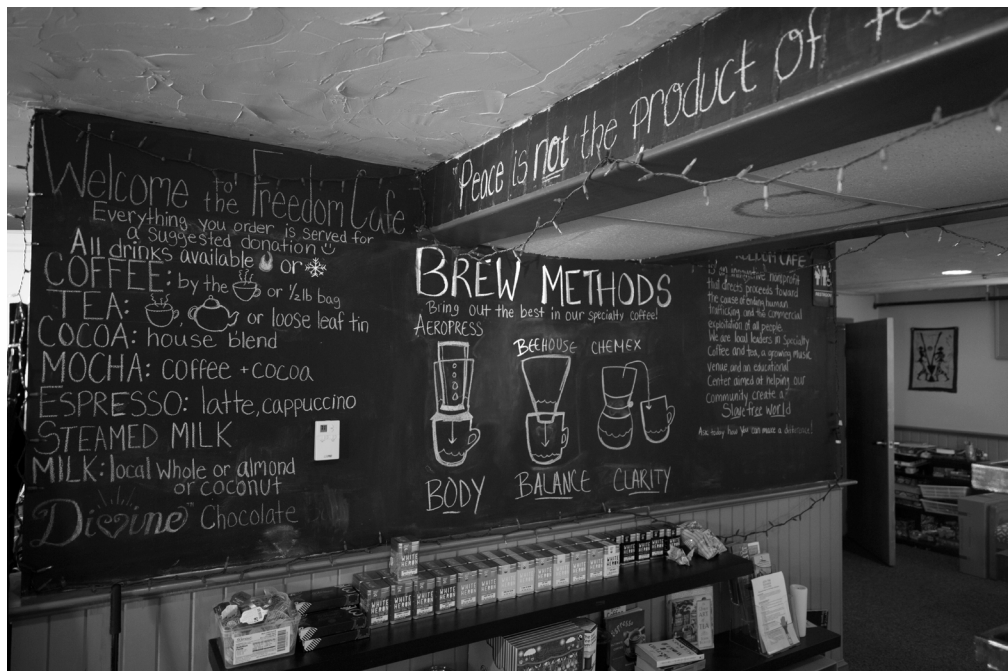 "Peace is not the product of
Welcome to the Freedom Cafe
Everything you order is served for
a suggested donation
All drinks available or
COFFEE: by the or ½ lb bag
TEA: , or loose leaf tin
COCOA: house blend
MOCHA: coffee + cocoa
ESPRESSO: latte, cappuccino
STEAMED MILK
MILK: local whole or almond
or coconut
Divine Chocolate
BREW METHODS
Bring out the best in our specialty coffee!
AEROPRESS
BEEHOUSE CHEMEX
BODY BALANCE CLARITY
CAFE
is an innovative nonprofit
that directs proceeds toward
the cause of ending human
trafficking and the commercial
exploitation of all people.
We are local leaders in Specialty
Coffee and tea, a growing music
venue, and an educational
Center aimed at helping our
community create a
Slave free world
Ask today how you can make a difference!
WHITE HERON